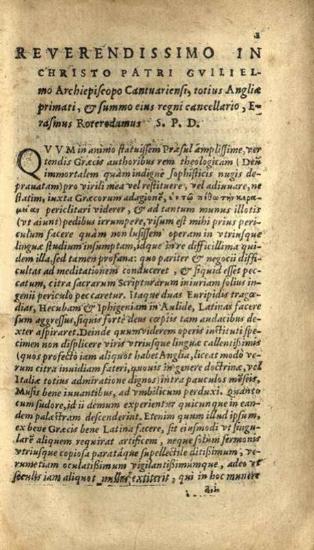 2
REVERENDISSIMO IN
CHRISTO PATRI GVILIEL-
mo Archiepiscopo Cantuariensi, totius Angliæ
primati, & summo eius regni cancellario, E-
rasmus Roterodamus S. P. D.
QVVM in animo statuissem Præsul amplissime, ver
tendis Græcis authoribus rem theologicam (Deũ
immortalem quàm indignè sophisticis nugis de-
prauatam) pro virili mea vel restituere, vel adiuuare, ne
statim, iuxta Græcorum adagionẽ, ἐν τῷ πίθῳ τὴν κεραμ-
periclitari viderer, & ad tantum munus illotis
(vt aiunt) pedibus irrumpere, visum est mihi prius peri-
culum facere quàm non lusissem operam in vtriusque
linguæ studium insumptam, idque in re difficillima qui-
dem illa, sed tamen profana: quo pariter & negocii diffi-
cultas ad meditationem conduceret, & siquid esset pec-
catum, citra sacrarum Scripturarum iniuriam solius in-
genii periculo peccaretur. itaque duas Euripidis tragœ-
dias, Hecubam & Iphigeniam in Aulide, Latinas facere
sum aggressus, siquis fortè deus cœptis tam audacibus de-
xter aspiraret. Deinde quum viderem operis instituti speci-
men non displicere viris vtriusque linguæ callentissimis
(quos profectò iam aliquot habet Anglia, liceat modò ve-
rum citra inuidiam fateri, quouis in genere doctrinæ, vel
Italiæ totius admiratione dignos) intra pauculos mẽseis,
Musis bene iuuantibus, ad vmbilicum perduxi. Quanto
cum sudore, id ii demum experientur quicunque in ean-
dem palæstram descenderint. Etenim quum illud ipsum,
ex bene Græcis bene Latina facere, sit eiusmodi vt singu-
larẽ aliquem requirat artificem, neque solum sermonis
vtriusque copiosa parataque supellectile ditissimum, ve-
rumetiam oculatissimum vigilantissimumque, adeo vt
seculis iam aliquot nullus extiterit, qui in hoc munere